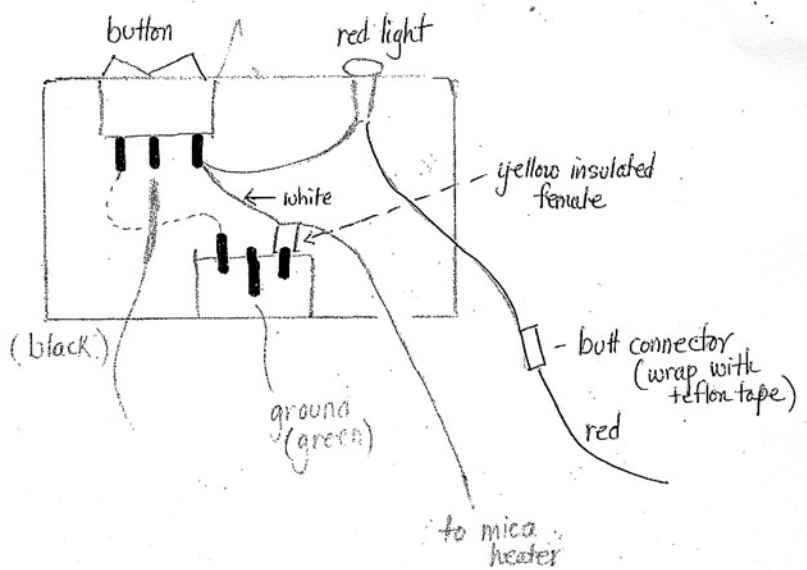 button
red light
white
yellow insulated
female
(black)
ground
(green)
butt connector
(wrap with
teflon tape)
red
to mica
heater